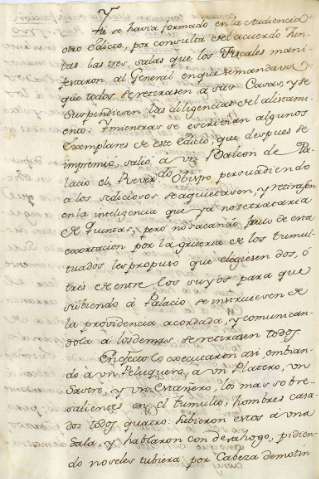 Ya se havia formado en la Audiencia
otro edicto, por consulta del acuerdo hen-
las tres salas que los Fiscales mani-
festaron al General en que se mandava
que todos se retirasen a sus Casas, y se
suspendiesen las diligencias del alistami-
ento. Y mientras se escrivian algunos
Exemplares de este edicto, que despues se
imprimio, salio a un Balcon de Pa-
lacio el Obispo persuadiendo
a los sediciosos se aquietasen, y retirasen
en la inteligencia que ya no se trataria
de Quintas; pero no sacando fruto de esta
exortacion por la griteria de los tumul-
tuados les propuso que eligiesen dos, o
tres de entre los suyos para que
subiendo a Palacio se instruiesen de
la providencia acordada, y comunican-
dola a los demas se retirasen todos
En efecto lo executaron asi embian-
do a un Peluquero, a un Platero, un
Sastre, y un Estañero, los mas sobre-
salientes en el tumulto, hombres casa-
dos todos quatro: subieron estos a una
Sala, y hablaron con desahogo, pidien-
do no se les tubiera por Cabeza de motin